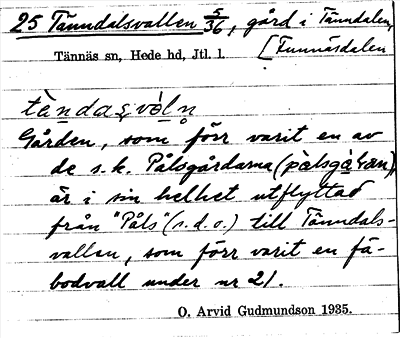 25 Tänndalsvallen 5/36, gård i Tänndalen,
[Funnäsdalen
Tännäs sn, Hede hd, Jtl. l.
Gården, som förr varit en av
de s.k. Pålsgårdarna (pålsgàɽan),
är i sin helhet utflyttad
från "Påls" (s.d.o.) till Tänndals-
vallen, som förr varit en fä-
bodvall under nr 21.
O. Arvid Gudmundson 1935.